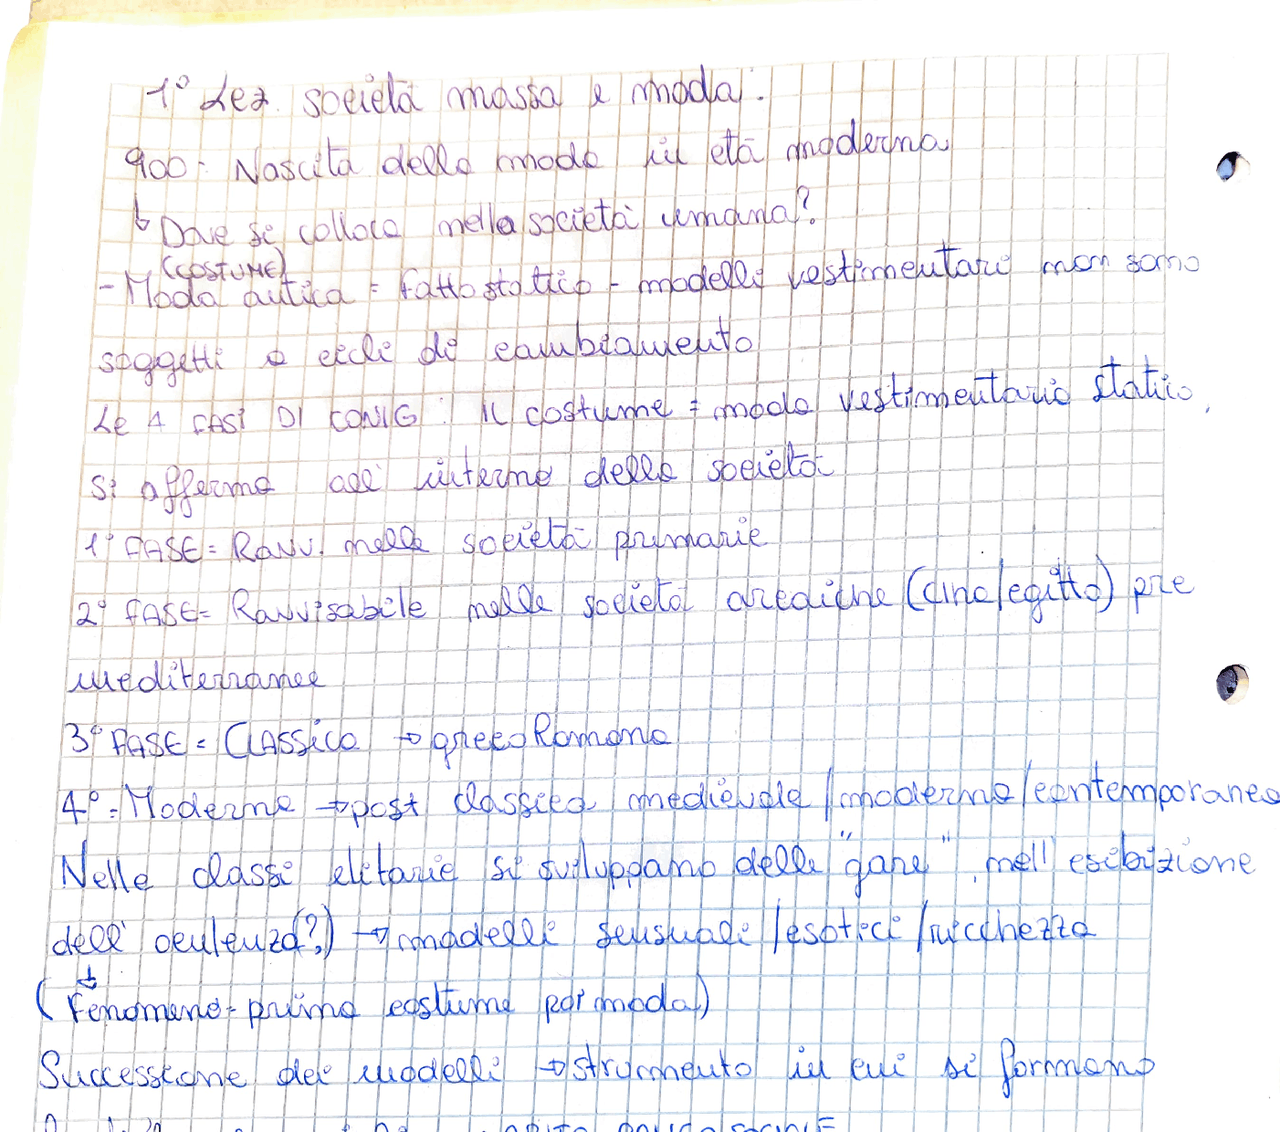 1° Lez. società massa e moda.
900: Nascita della moda in età moderna
↳ Dove si colloca nella società umana?
(COSTUME)
- Moda antica = fatto statico - modelli vestimentari non sono
soggetti a cicli di cambiamento
Le 4 FASI DI KONIG: IL costume = moda vestimentario statico,
si afferma all'interno della società
1° FASE = Ravv. nelle società primarie
2° FASE = Ravvisabile nelle società arcaiche (cina/egitto) pre
mediterranee
3° FASE = CLASSICA → greco Romana
4° = Moderna → post classica medievale/moderna/contemporanea
Nelle classi elitarie si sviluppano delle "gare", nell'esibizione
dell'oculenza(?) → modelli sensuali/esotici/ricchezza
(Fenomeno = prima costume poi moda)
Successione dei modelli → strumento in cui si formano